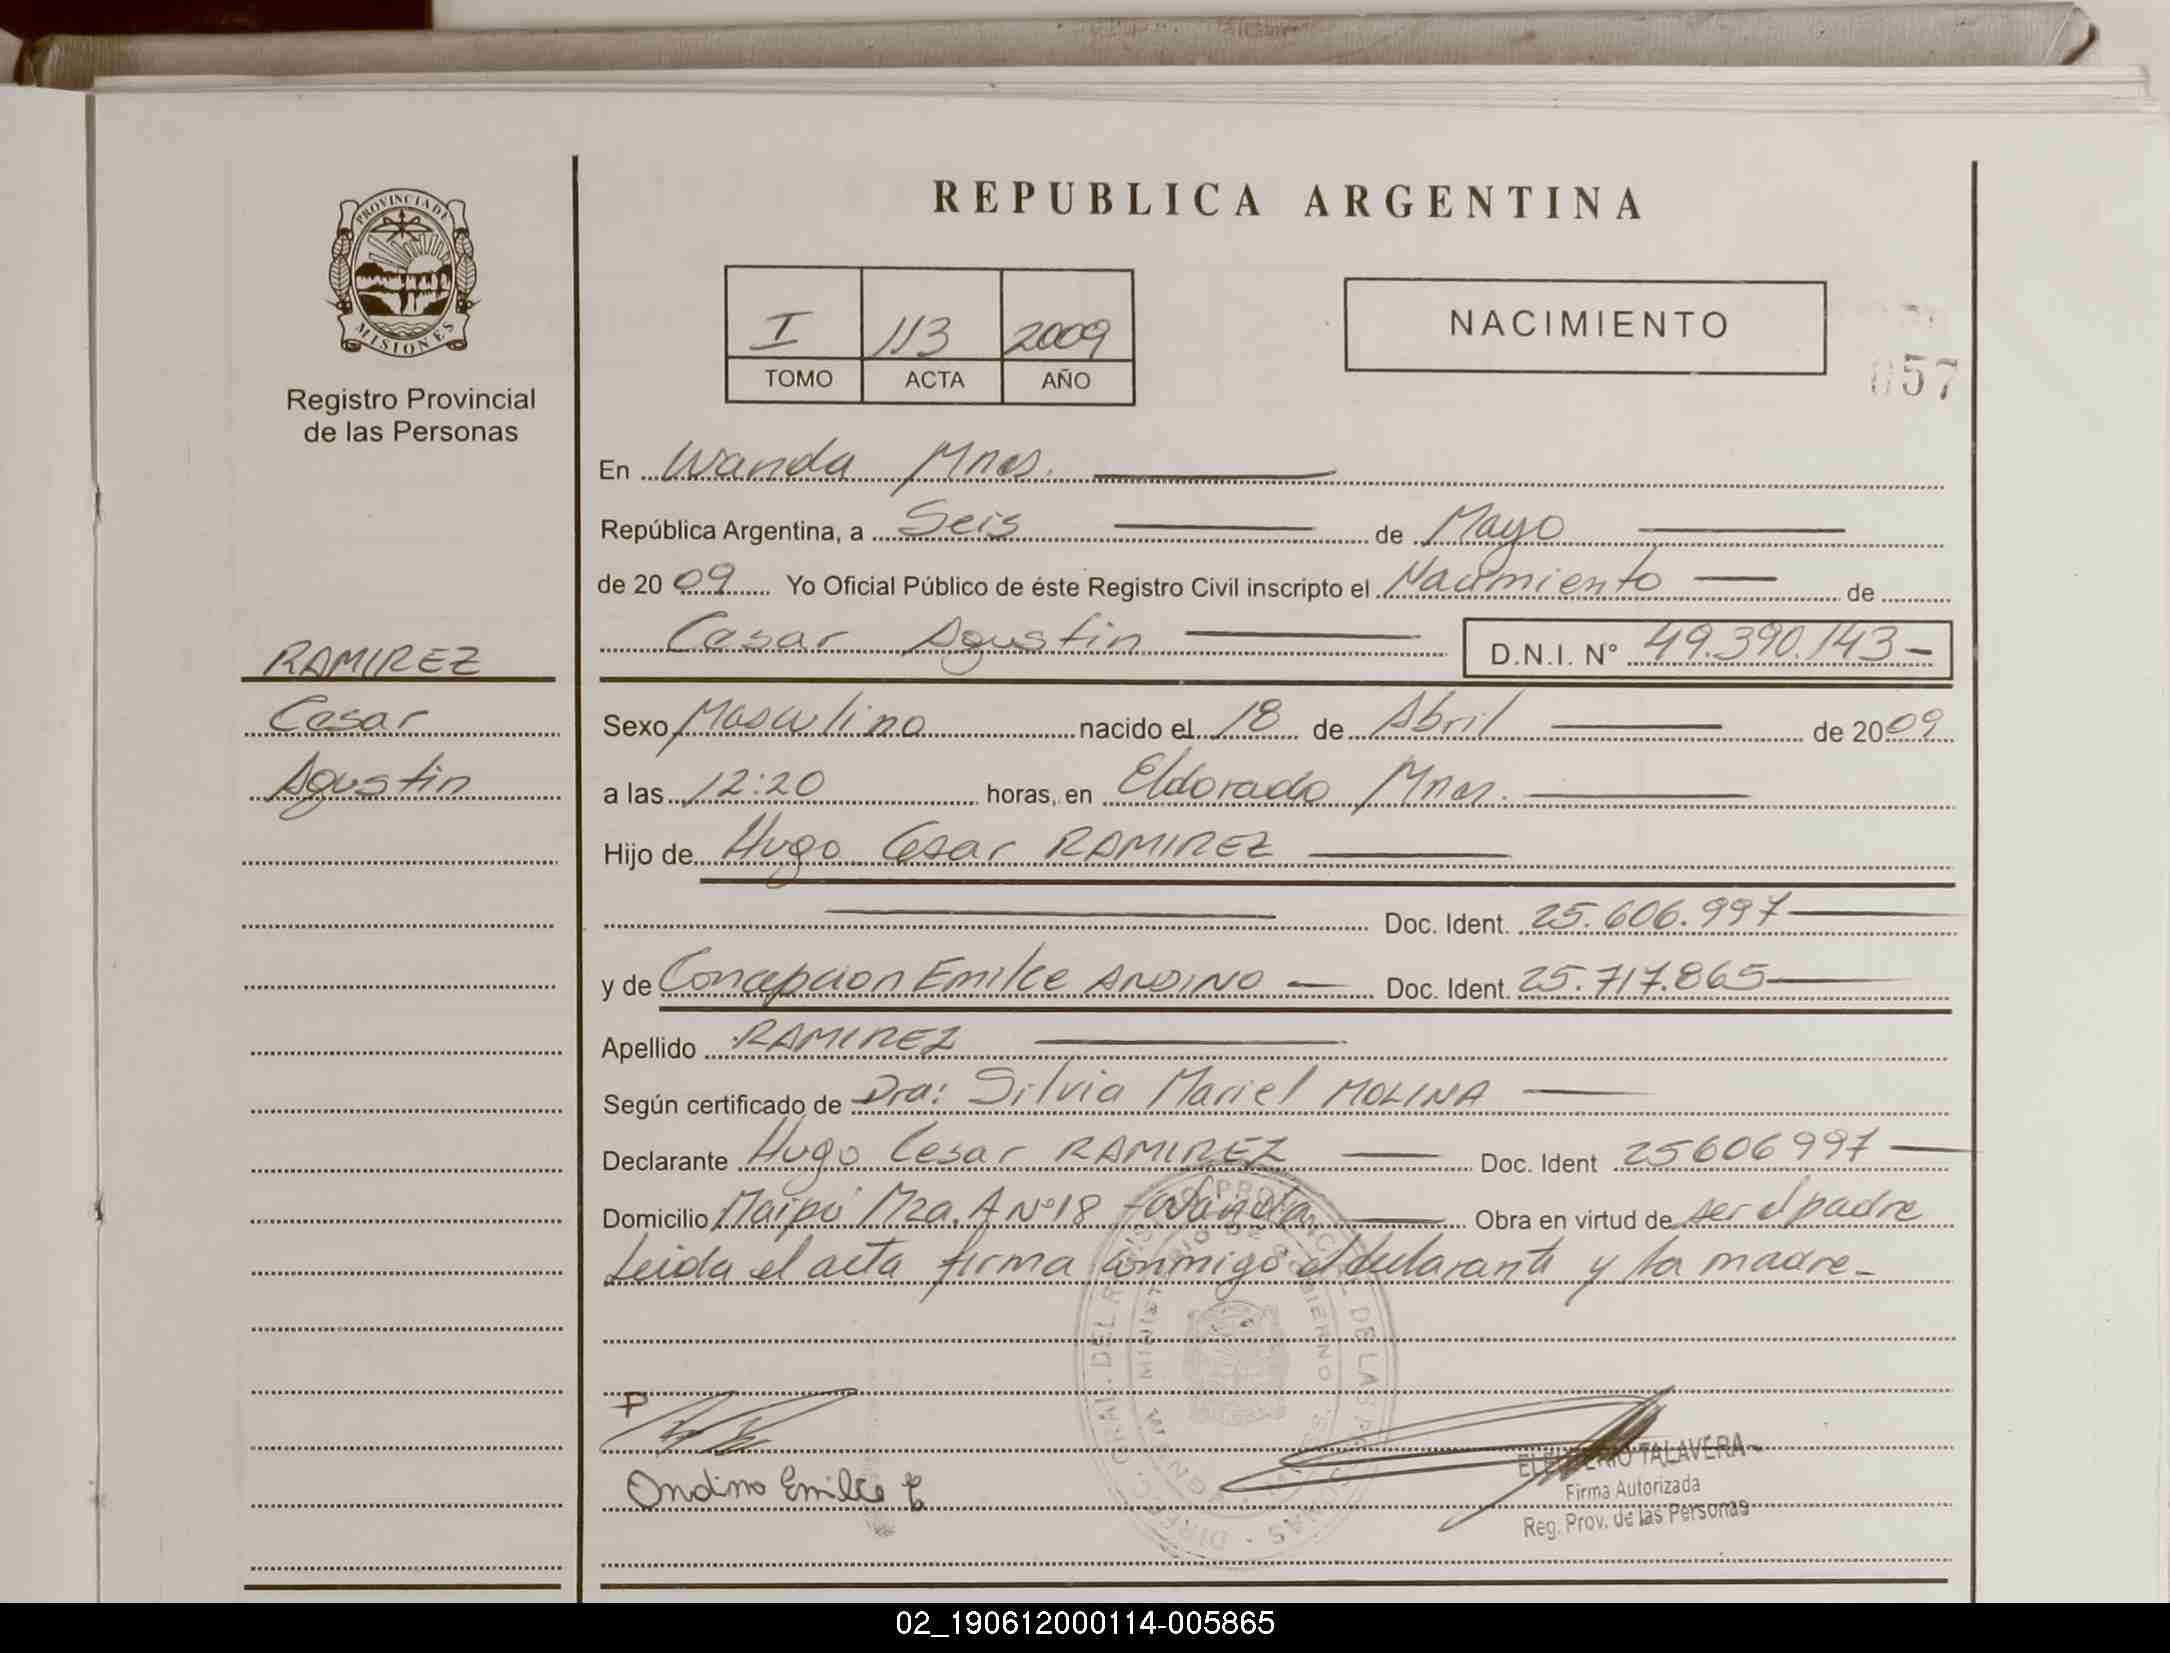 REPUBLICA ARGENTINA
PROVINCIA DE
MISIONES
Registro Provincial
de las Personas
I 113 2009
TOMO ACTA AÑO
NACIMIENTO
057
En Wanda Mnes.
República Argentina, a Seis de Mayo
de 2009 Yo Oficial Público de éste Registro Civil inscripto el Nacimiento de
Cesar Agustin D.N.I. N° 49.390.143
RAMIREZ
Cesar
Agustin
Sexo Masculino nacido el 18 de Abril de 2009
a las 12:20 horas, en Eldorado Mnes.
Hijo de Hugo Cesar RAMIREZ
Doc. Ident. 25.606.997
y de Concepcion Emilce ANDINO Doc. Ident. 25.717.865
Apellido RAMIREZ
Según certificado de Dra: Silvia Mariel MOLINA
Declarante Hugo Cesar RAMIREZ Doc. Ident 25606997
Domicilio Maipú Mza. A N°18 - Wanda Obra en virtud de ser el padre
Leida el acta firma conmigo el declarante y la madre
P
Ondino Emilce C
TALAVERA
Firma Autorizada
Reg. Prov. de las Personas
MINISTERIO DE GOBIERNO
02_190612000114-005865